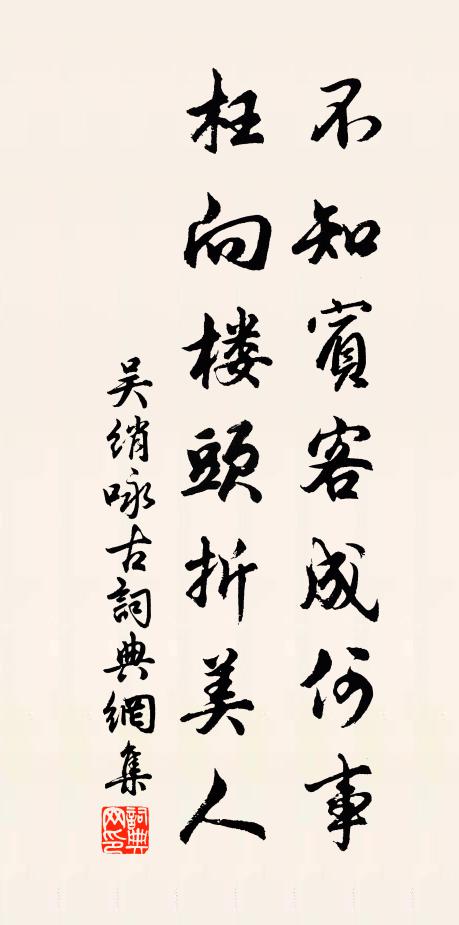 不知賓客成何事
枉向楼頭折美人
吴绡咏古詞典網集
詞典网印